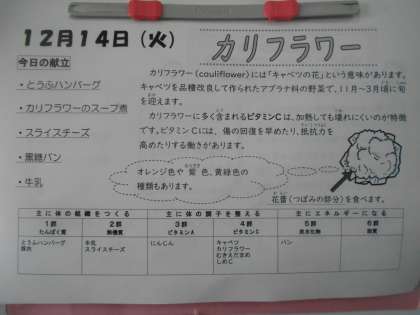 12月14日（火）
カリフラワー
今日の献立
・とうふハンバーグ
・カリフラワーのスープ煮
・スライスチーズ
・黒糖パン
・牛乳
カリフラワー（cauliflower）には「キャベツの花」という意味があります。
キャベツを品種改良して作られたアブラナ科の野菜で、11月～3月頃に旬
を迎えます。
カリフラワーに多く含まれるビタミンCは、加熱しても壊れにくいのが特徴
です。ビタミンCには、傷の回復を早めたり、抵抗力を
高めたりする働きがあります。
オレンジ色や 紫 色、黄緑色の
種類もあります。
花蕾（つぼみの部分）を食べます。
主に体の組織をつくる 主に体の調子を整える 主にエネルギーになる
1群 2群 3群 4群 5群 6群
たんぱく質 無機質 ビタミンA ビタミンC 炭水化物 脂質
とうふハンバーグ 牛乳 にんじん キャベツ パン
豚肉 スライスチーズ カリフラワー
むきえだまめ
しめじ